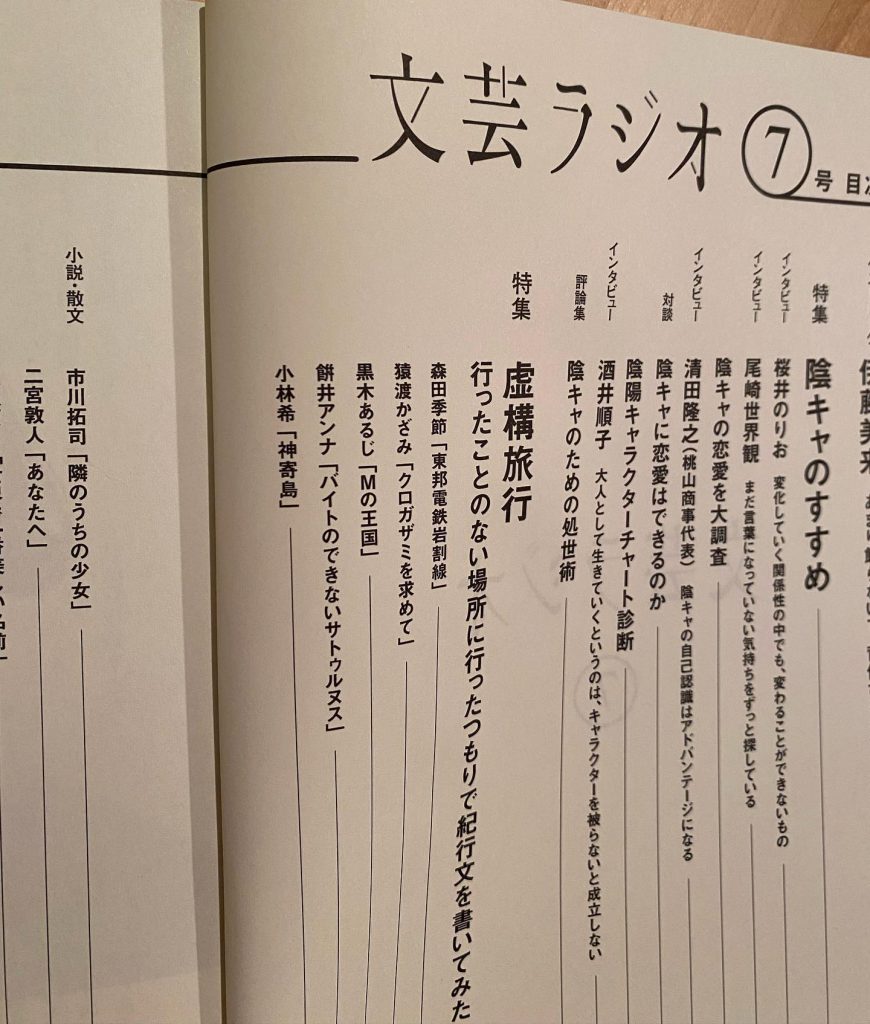 文芸ラジオ ⑦号 目次
伊藤美来
特集 陰キャのすすめ
インタビュー 桜井のりお 変化していく関係性の中でも、変わることができないもの
インタビュー 尾崎世界観 まだ言葉になっていない気持ちをずっと探している
陰キャの恋愛を大調査
インタビュー 清田隆之(桃山商事代表) 陰キャの自己認識はアドバンテージになる
対談 陰キャに恋愛はできるのか
陰陽キャラクターチャート診断
インタビュー 酒井順子 大人として生きていくというのは、キャラクターを被らないと成立しない
評論集 陰キャのための処世術
特集 虚構旅行
行ったことのない場所に行ったつもりで紀行文を書いてみた
森田季節「東邦電鉄岩割線」
猿渡かざみ「クロガザミを求めて」
黒木あるじ「Mの王国」
餅井アンナ「バイトのできないサトゥルヌス」
小林希「神寄島」
小説・散文 市川拓司「隣のうちの少女」
二宮敦人「あなたへ」